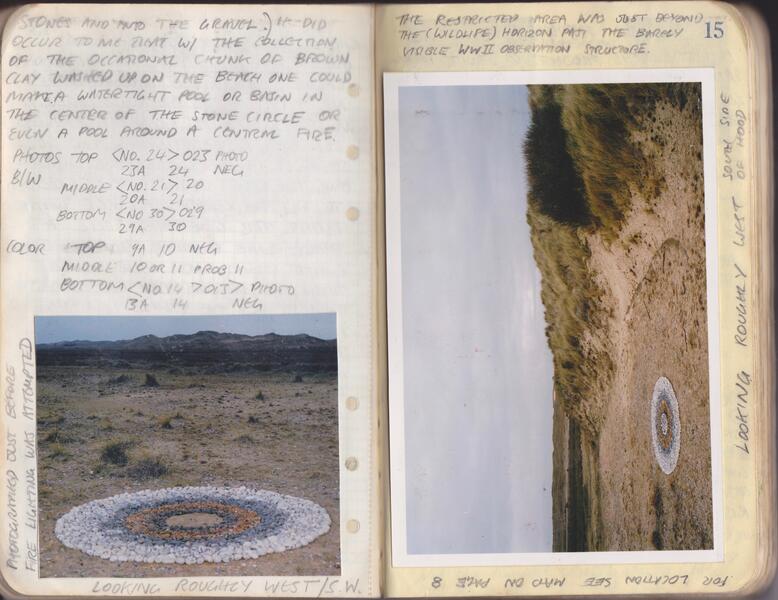 STONES AND INTO THE GRAVEL.) IT DID
OCCUR TO ME THAT W/ THE COLLECTION
OF THE OCCATIONAL CHUNK OF BROWN
CLAY WASHED UP ON THE BEACH ONE COULD
MAKE A WATERTIGHT POOL OR BASIN IN
THE CENTER OF THE STONE CIRCLE OR
EVEN A POOL AROUND A CENTRAL FIRE.
PHOTOS TOP <NO. 24> 023 PHOTO
23A 24 NEG
B/W MIDDLE <NO. 21> 20
20A 21
BOTTOM <NO 30> 029
29A 30
COLOR TOP 9A 10 NEG
MIDDLE 10 OR 11 PROB 11
BOTTOM <NO.14 > 013> PHOTO
13A 14 NEG
PHOTOGRAPHED JUST BEFORE
FIRE LIGHTING WAS ATTEMPTED
LOOKING ROUGHLY WEST/S.W.
THE RESTRICTED AREA WAS JUST BEYOND
THE (WILDLIFE) HORIZON PAST THE BARELY
VISIBLE WWII OBSERVATION STRUCTURE.
15
LOOKING ROUGHLY WEST SOUTH SIDE
OF HOOD
FOR LOCATION SEE MAP ON PAGE 8